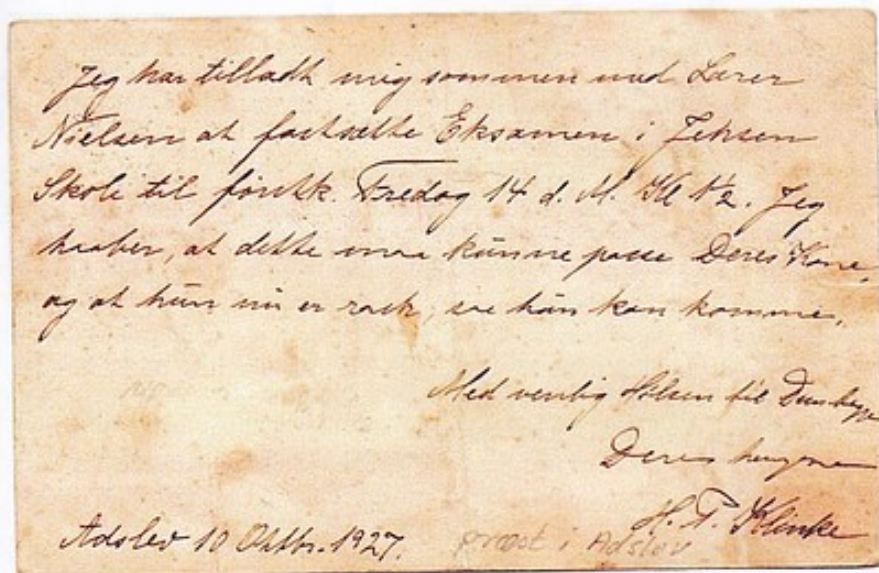 Jeg har tilladt mig sammen med Lærer
Nielsen at fastsætte Eksamen i Jeksen
Skole til førstk. Fredag 14 d. M. Kl 1½. Jeg
haaber, at dette maa kunne passe Deres Kone,
og at hun nu er rask, saa hun kan komme.
Med venlig Hilsen til Dem begge
Deres hengivne
H. P. Klinke
Adslev 10 Oktbr. 1927.
præst i Adslev